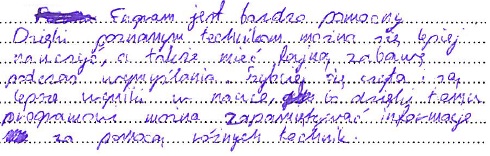 Program jest bardzo pomocny
Dzięki poznanym technikom można się lepiej
nauczyć, a także mieć fajną zabawę
podczas wymyślania. Szybciej się czyta i są
lepsze wyniki w nauce, bo dzięki temu
programowi można zapamiętywać informacje
za pomocą różnych technik.